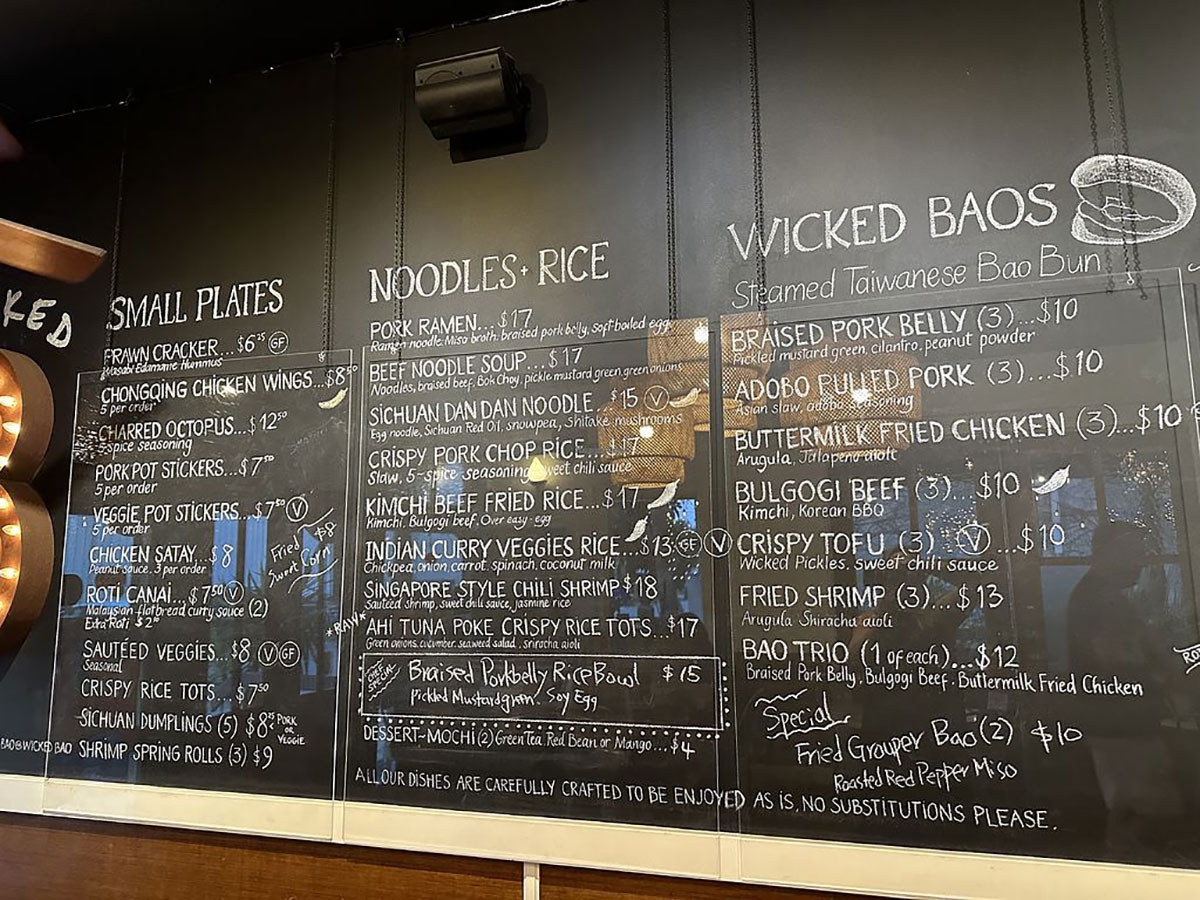 KED
BAO@WICKED BAO
SMALL PLATES
PRAWN CRACKER...$6²⁵ GF
Wasabi Edamame Hummus
CHONGQING CHICKEN WINGS...$8⁵⁰
5 per order
CHARRED OCTOPUS...$12⁵⁰
5-spice seasoning
PORK POT STICKERS...$7⁵⁰
5 per order
VEGGIE POT STICKERS...$7⁵⁰ V
5 per order
Fried $8
Sweet Corn
CHICKEN SATAY...$8
Peanut sauce. 3 per order
ROTI CANAI...$7⁵⁰ V
Malaysian flatbread curry sauce (2)
Extra Roti $2⁵⁰
SAUTÉED VEGGIES...$8 V GF
Seasonal
CRISPY RICE TOTS...$7⁵⁰
SICHUAN DUMPLINGS (5) $8²⁵ PORK OR VEGGIE
SHRIMP SPRING ROLLS (3) $9
NOODLES + RICE
PORK RAMEN...$17
Ramen noodle. Miso broth. braised pork belly, soft-boiled egg
BEEF NOODLE SOUP...$17
Noodles, braised beef, Bok Choy, pickle mustard green, green onions
SICHUAN DAN DAN NOODLE...$15 V
Egg noodle, Sichuan Red Oil, snowpea, Shitake mushrooms
CRISPY PORK CHOP RICE...$17
Slaw, 5-spice seasoning, sweet chili sauce
KIMCHI BEEF FRIED RICE...$17
Kimchi, Bulgogi beef, Over easy-egg
INDIAN CURRY VEGGIES RICE...$13 GF V
Chickpea, onion, carrot, spinach, coconut milk
SINGAPORE STYLE CHILI SHRIMP $18
Sautéed shrimp, sweet chili sauce, jasmine rice
*RAW*
AHI TUNA POKE CRISPY RICE TOTS...$17
Green onions, cucumber, seaweed salad, sriracha aioli
CHEF SPECIAL
Braised Porkbelly Rice Bowl $15
Pickled Mustard green / Soy Egg
DESSERT-MOCHI (2) Green Tea. Red Bean or Mango...$4
WICKED BAOS
Steamed Taiwanese Bao Bun
BRAISED PORK BELLY (3)...$10
Pickled mustard green, cilantro, peanut powder
ADOBO PULLED PORK (3)...$10
Asian slaw, adobo seasoning
BUTTERMILK FRIED CHICKEN (3)...$10
Arugula, Jalapeno aioli
BULGOGI BEEF (3)...$10
Kimchi, Korean BBQ
CRISPY TOFU (3) V ...$10
Wicked Pickles. sweet chili sauce
FRIED SHRIMP (3)...$13
Arugula Shiracha aioli
BAO TRIO (1 of each)...$12
Braised Pork Belly. Bulgogi Beef. Buttermilk Fried Chicken
Special
Fried Grouper Bao (2) $10
Roasted Red Pepper Miso
ALL OUR DISHES ARE CAREFULLY CRAFTED TO BE ENJOYED AS IS, NO SUBSTITUTIONS PLEASE.